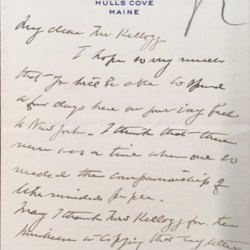 HULLS COVE
MAINE
My dear Mr Kellogg
I hope so very much
that you will be able to spend
a few days here on your way back
to New York. I think that there
never was a time when one so
needed the companionship of
like minded people.
May I thank Mrs Kellogg for her
kindness in copying that